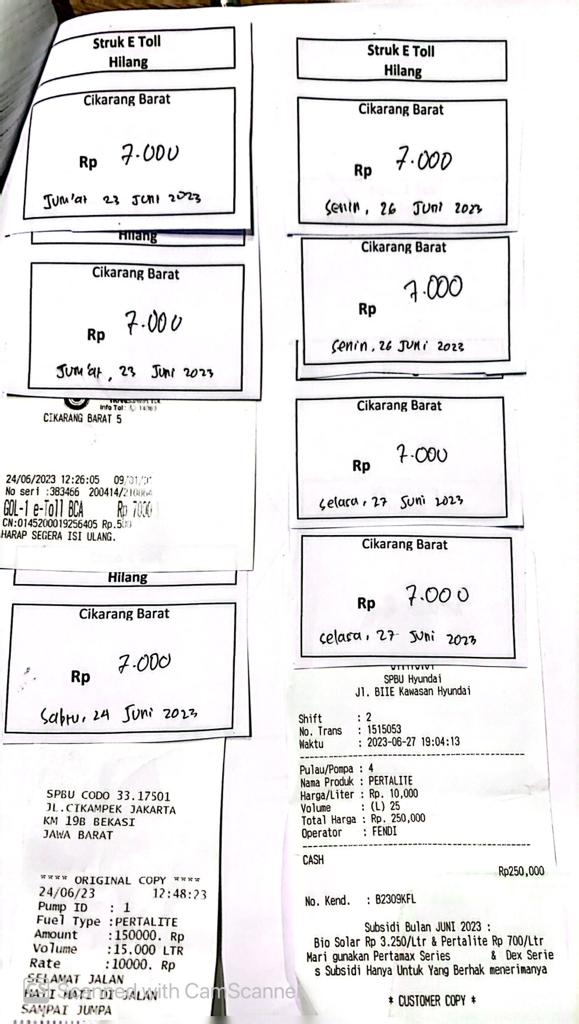 Struk E Toll
Hilang
Cikarang Barat
Rp 7.000
Jum'at 23 Juni 2023
Hilang
Cikarang Barat
Rp 7.000
Jum'at, 23 Juni 2023
Info Tol:
CIKARANG BARAT 5
24/06/2023 12:26:05
No seri :383466
GOL-1 e-Toll BCA Rp 7000
CN:0145200019256405
HARAP SEGERA ISI ULANG.
Hilang
Cikarang Barat
Rp 7.000
Sabtu, 24 Juni 2023
SPBU CODO 33.17501
JL.CIKAMPEK JAKARTA
KM 19B BEKASI
JAWA BARAT
**** ORIGINAL COPY ****
24/06/23 12:48:23
Pump ID : 1
Fuel Type :PERTALITE
Amount :150000. Rp
Volume :15.000 LTR
Rate :10000. Rp
SELAMAT JALAN
HATI HATI DI JALAN
SAMPAI JUMPA
Struk E Toll
Hilang
Cikarang Barat
Rp 7.000
Senin, 26 Juni 2023
Cikarang Barat
Rp 7.000
Senin, 26 Juni 2023
Cikarang Barat
Rp 7.000
Selasa, 27 Juni 2023
Cikarang Barat
Rp 7.000
Selasa, 27 Juni 2023
SPBU Hyundai
Jl. BIIE Kawasan Hyundai
Shift : 2
No. Trans : 1515053
Waktu : 2023-06-27 19:04:13
Pulau/Pompa : 4
Nama Produk : PERTALITE
Harga/Liter : Rp. 10,000
Volume : (L) 25
Total Harga : Rp. 250,000
Operator : FENDI
CASH
Rp250,000
No. Kend. : B2309KFL
Subsidi Bulan JUNI 2023 :
Bio Solar Rp 3.250/Ltr & Pertalite Rp 700/Ltr
Mari gunakan Pertamax Series & Dex Serie
s Subsidi Hanya Untuk Yang Berhak menerimanya
* CUSTOMER COPY *
Scanned with CamScanner